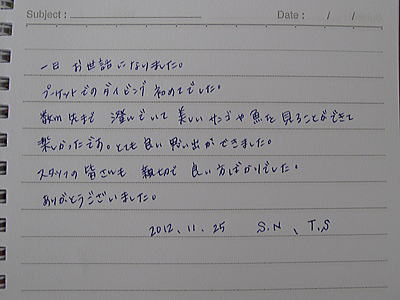 Subject : Date : / /
一日 お世話になりました。
プーケットでのダイビング 初めてでした。
数m先まで 澄んでいて 美しい サンゴや魚を 見ることができて
楽しかったです。とても良い 思い出ができました。
スタッフの皆さんも 親切で 良い方ばかりでした。
ありがとうございました。
2012.11.25 S.N、T.S